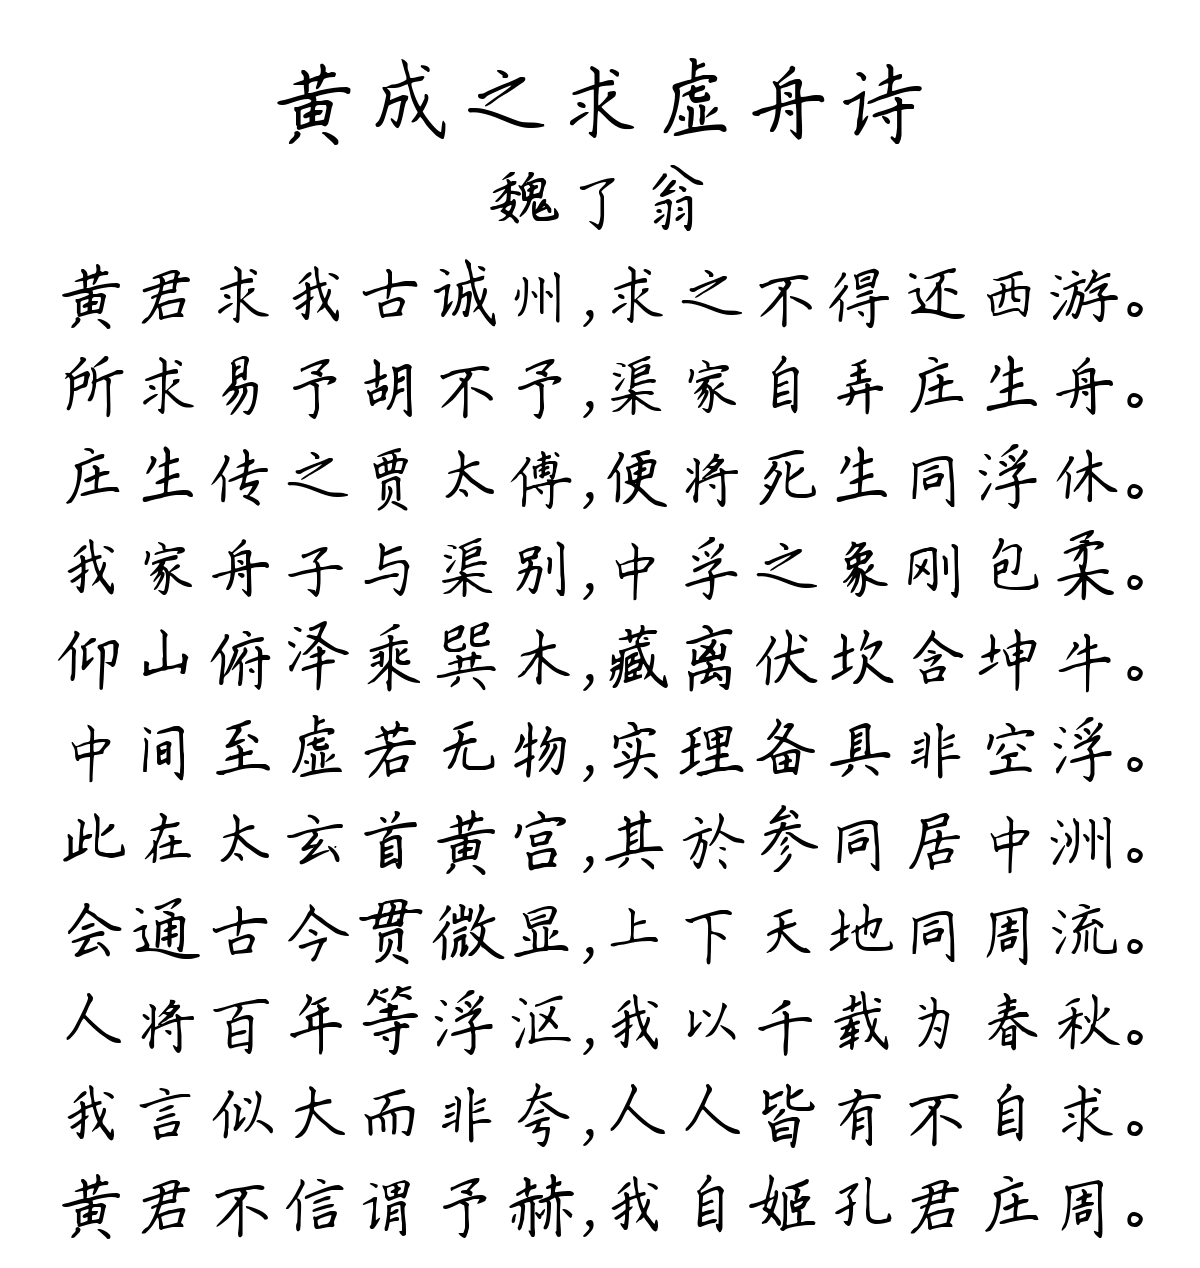 黄成之求虚舟诗
魏了翁
黄君求我古诚州,求之不得还西游。
所求易予胡不予,渠家自弄庄生舟。
庄生传之贾太傅,便将死生同浮休。
我家舟子与渠别,中孚之象刚包柔。
仰山俯泽乘巽木,藏离伏坎含坤牛。
中间至虚若无物,实理备具非空浮。
此在太玄首黄宫,其於参同居中洲。
会通古今贯微显,上下天地同周流。
人将百年等浮沤,我以千载为春秋。
我言似大而非夸,人人皆有不自求。
黄君不信谓予赫,我自姬孔君庄周。